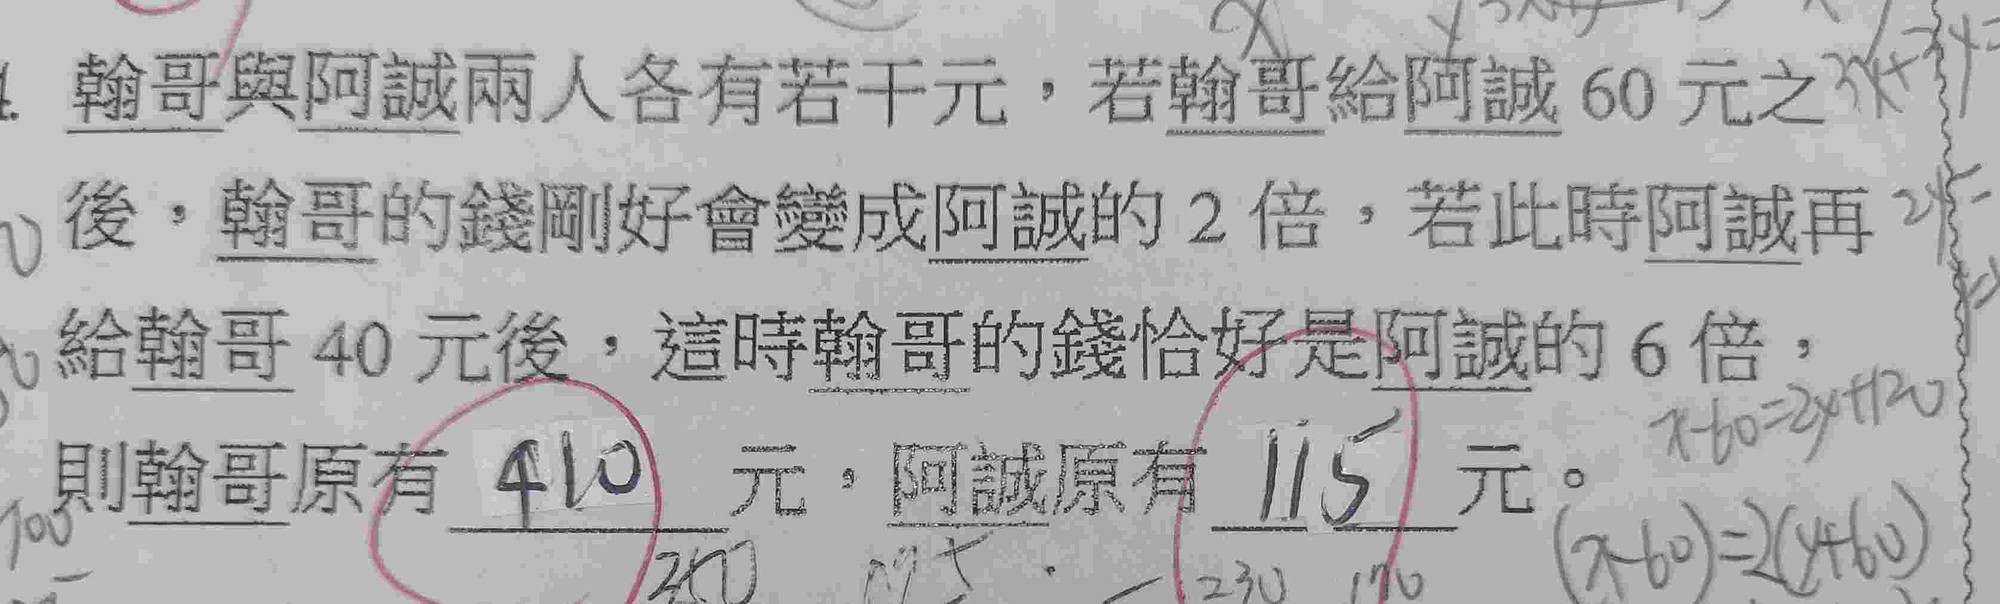 翰哥與阿誠兩人各有若干元，若翰哥給阿誠 60 元之
後，翰哥的錢剛好會變成阿誠的 2 倍，若此時阿誠再
給翰哥 40 元後，這時翰哥的錢恰好是阿誠的 6 倍，
x-60=2y+120
則翰哥原有 410 元，阿誠原有 115 元。
(x-60)=2(y+60)
350
230 170